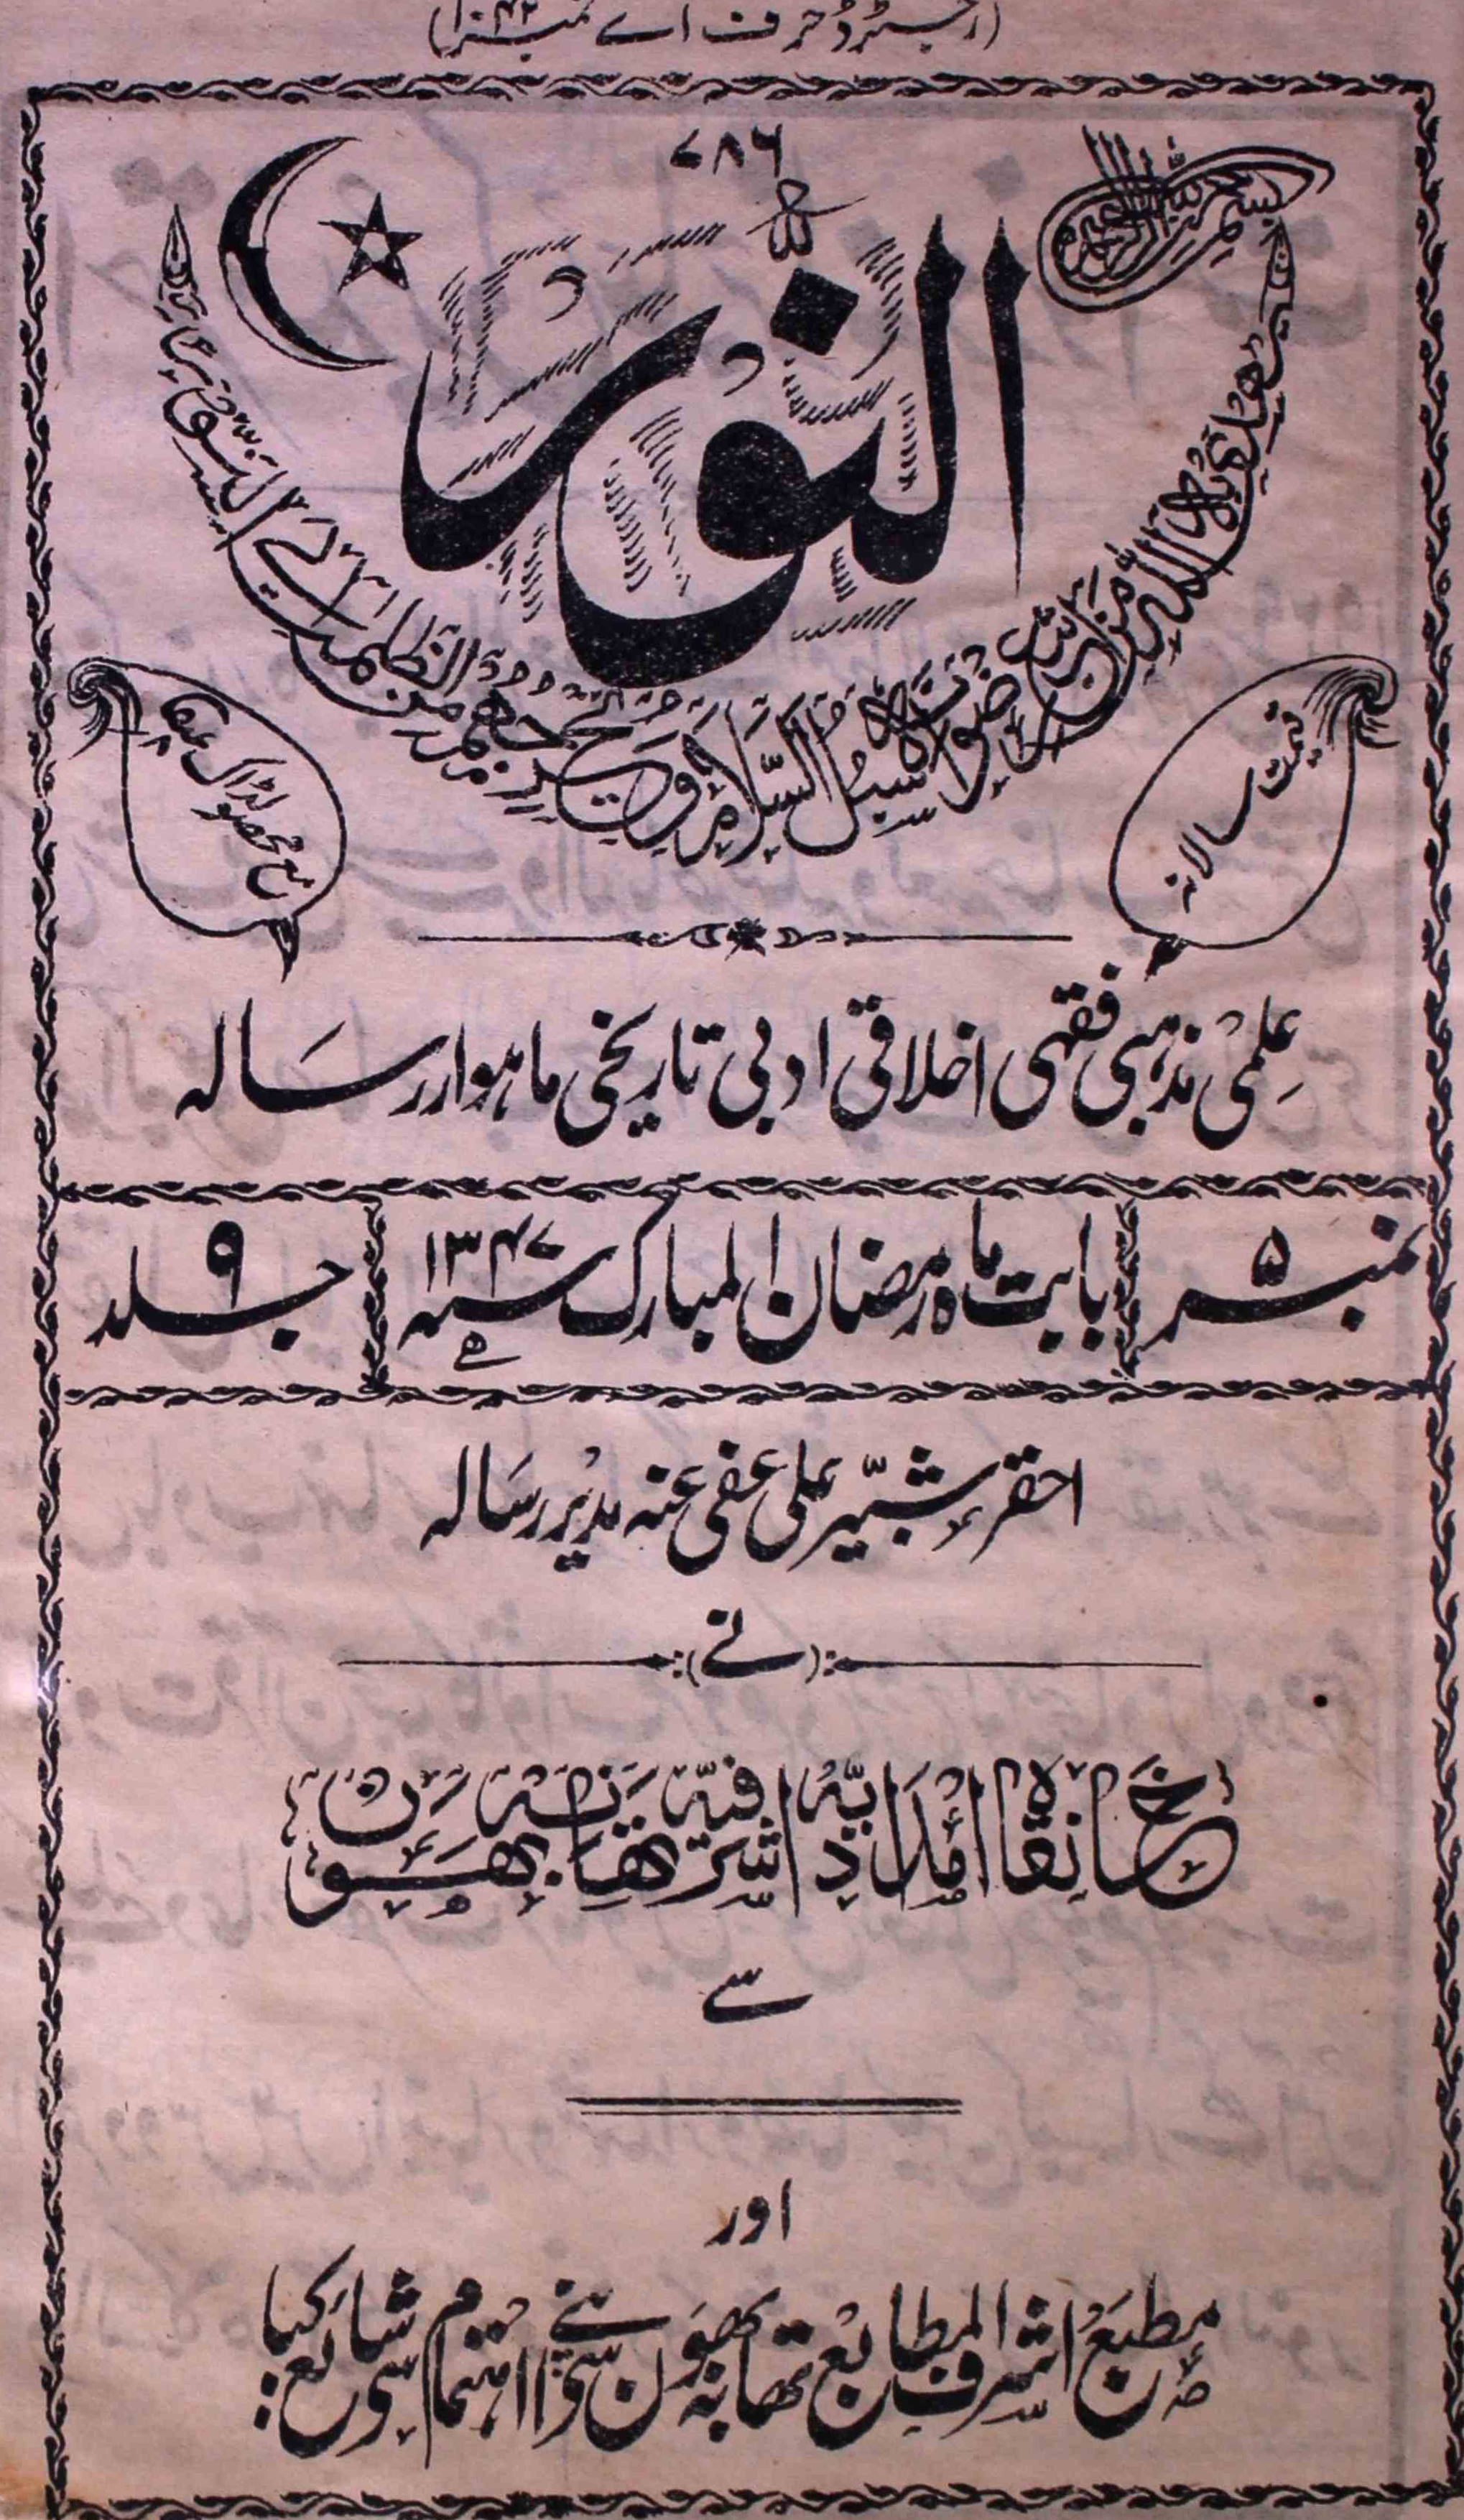 (رجسٹرڈ حرف اے نمبر
۷۸۶
بسم الله الرحمن الرحيم
النور
يهدي به الله من اتبع رضوانه سبل السلام ويخرجهم من الظلمت الى النور
قیمت سالانہ
مع محصولڈاک
علمی مذہبی فقہی اخلاقی ادبی تاریخی ماہوار رسالہ
نمبر ۵
بابت ماہ رمضان المبارک سنہ ۱۳۴۷ ھ
جلد ۹
احقر شبیر علی عفی عنہ مدیر رسالہ
(نے)
خانقاہ امدادیہ اشرفیہ تھانہ بھون
سے
اور
مطبع اشرف المطابع تھانہ بھون سے اپنے اہتمام سی شایع کیا